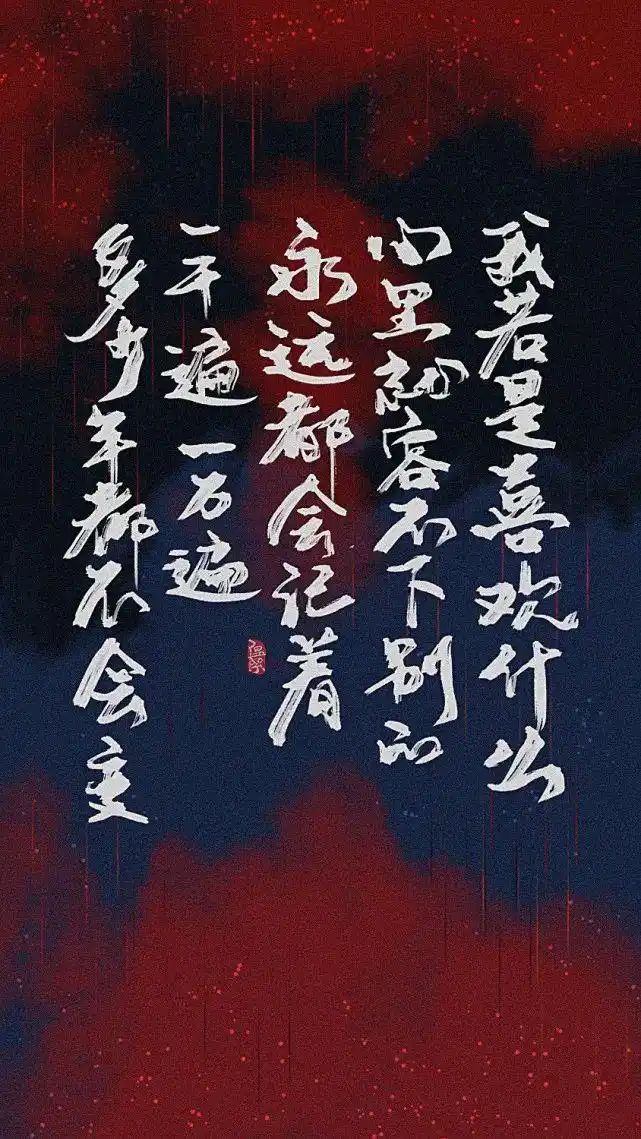 我若是喜欢什么
心里就容不下别的
永远都会记着
一千遍一万遍
多少年都不会变